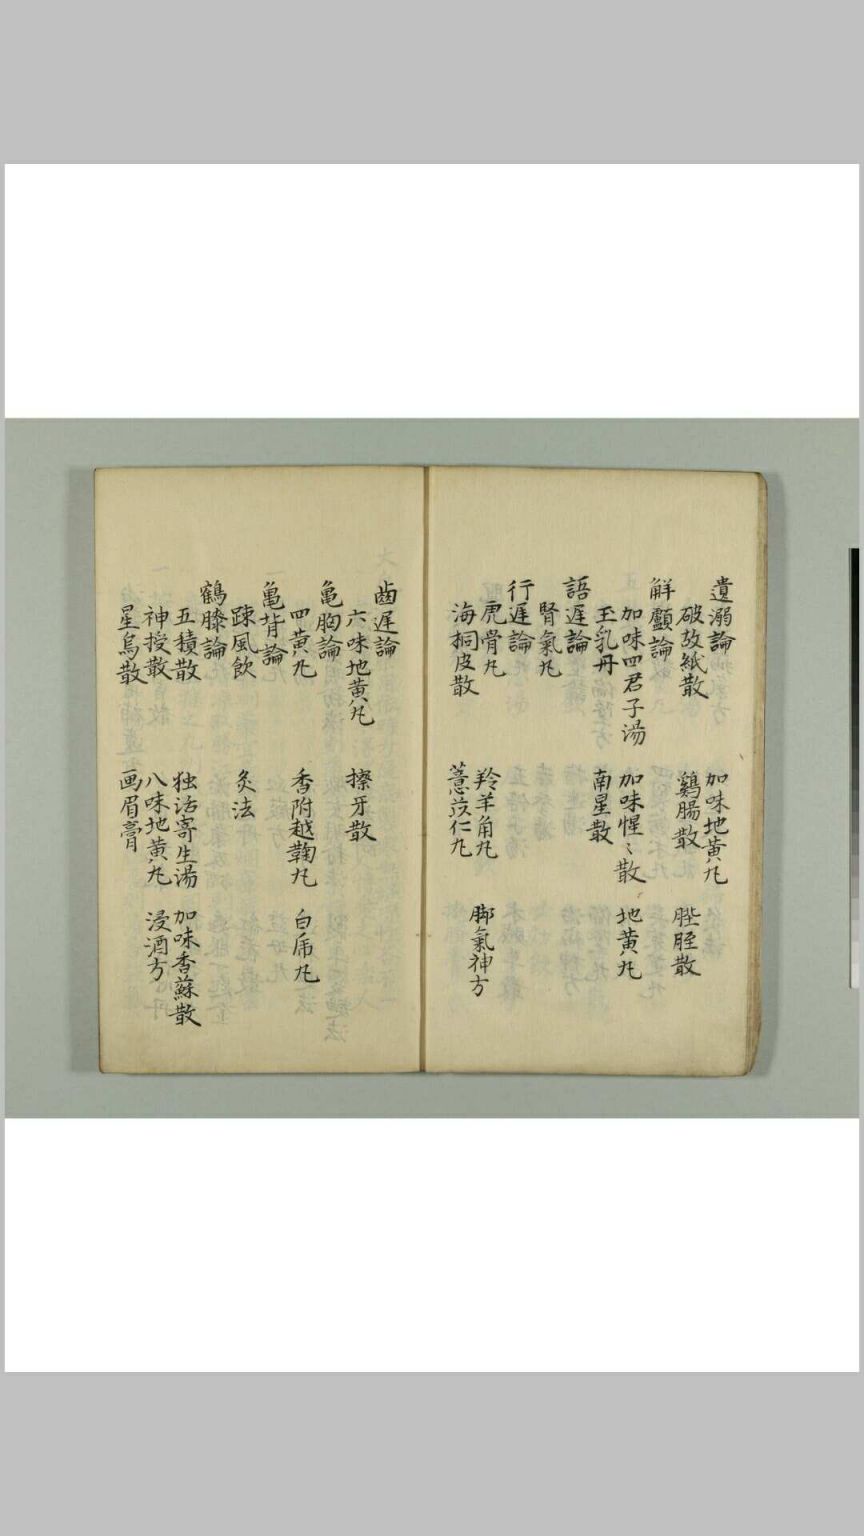 遺溺論
加味地黄丸
破故紙散 鷄腸散 䏶胵散
解顱論
加味四君子湯 加味惺〻散 地黄丸
玉乳丹 南星散
語遅論
腎氣丸
行遅論
虎骨丸 羚羊角丸 脚氣神方
海桐皮散 薏苡仁丸
齒遅論
六味地黄丸 擦牙散
亀胸論
四黄丸 香附越鞠丸 白虎丸
亀背論
踈風飲 灸法
鶴膝論
五積散 独活寄生湯 加味香蘇散
神授散 八味地黄丸 浸酒方
星烏散 画眉膏